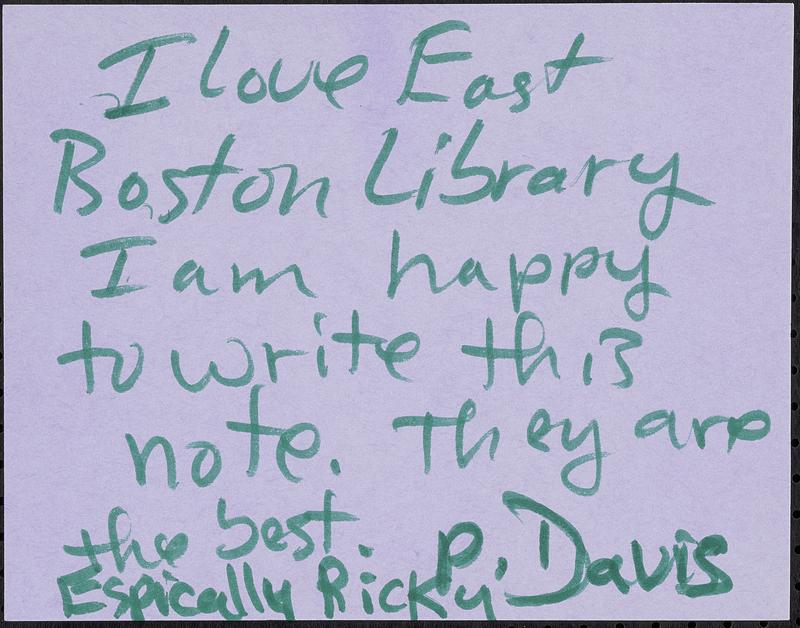 I love East
Boston Library
I am happy
to write this
note. They are
the best.
P. Davis
Espically Ricky